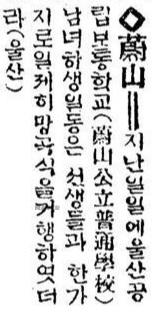 ◇蔚山＝지난일일에울산공
립보통학교(蔚山公立普通學校)
남녀하생일동은 선생들과 한가
지로일제히망곡식을거행하엿더
라(울산)